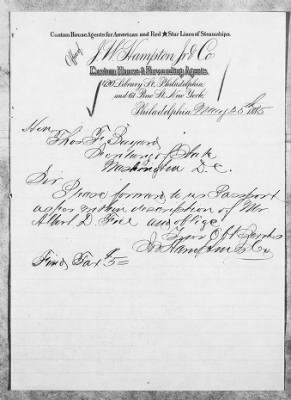 Custom House Agents for American and Red ★ Star Lines of Steamships.
Office of J. W. Hampton Jr & Co
Custom House & Forwarding Agents,
420 Library St. Philadelphia
and 61 Pine St. New York.
Philadelphia, May 25th 1885
Hon
Thos F. Bayard
Secretary of State
Washington D.C.
Sir
Please forward to us Passport
as per within description of Mr
Albert D. and oblige
Your Obt Servts
J W Hampton Jr & Co
Find Tax $5=